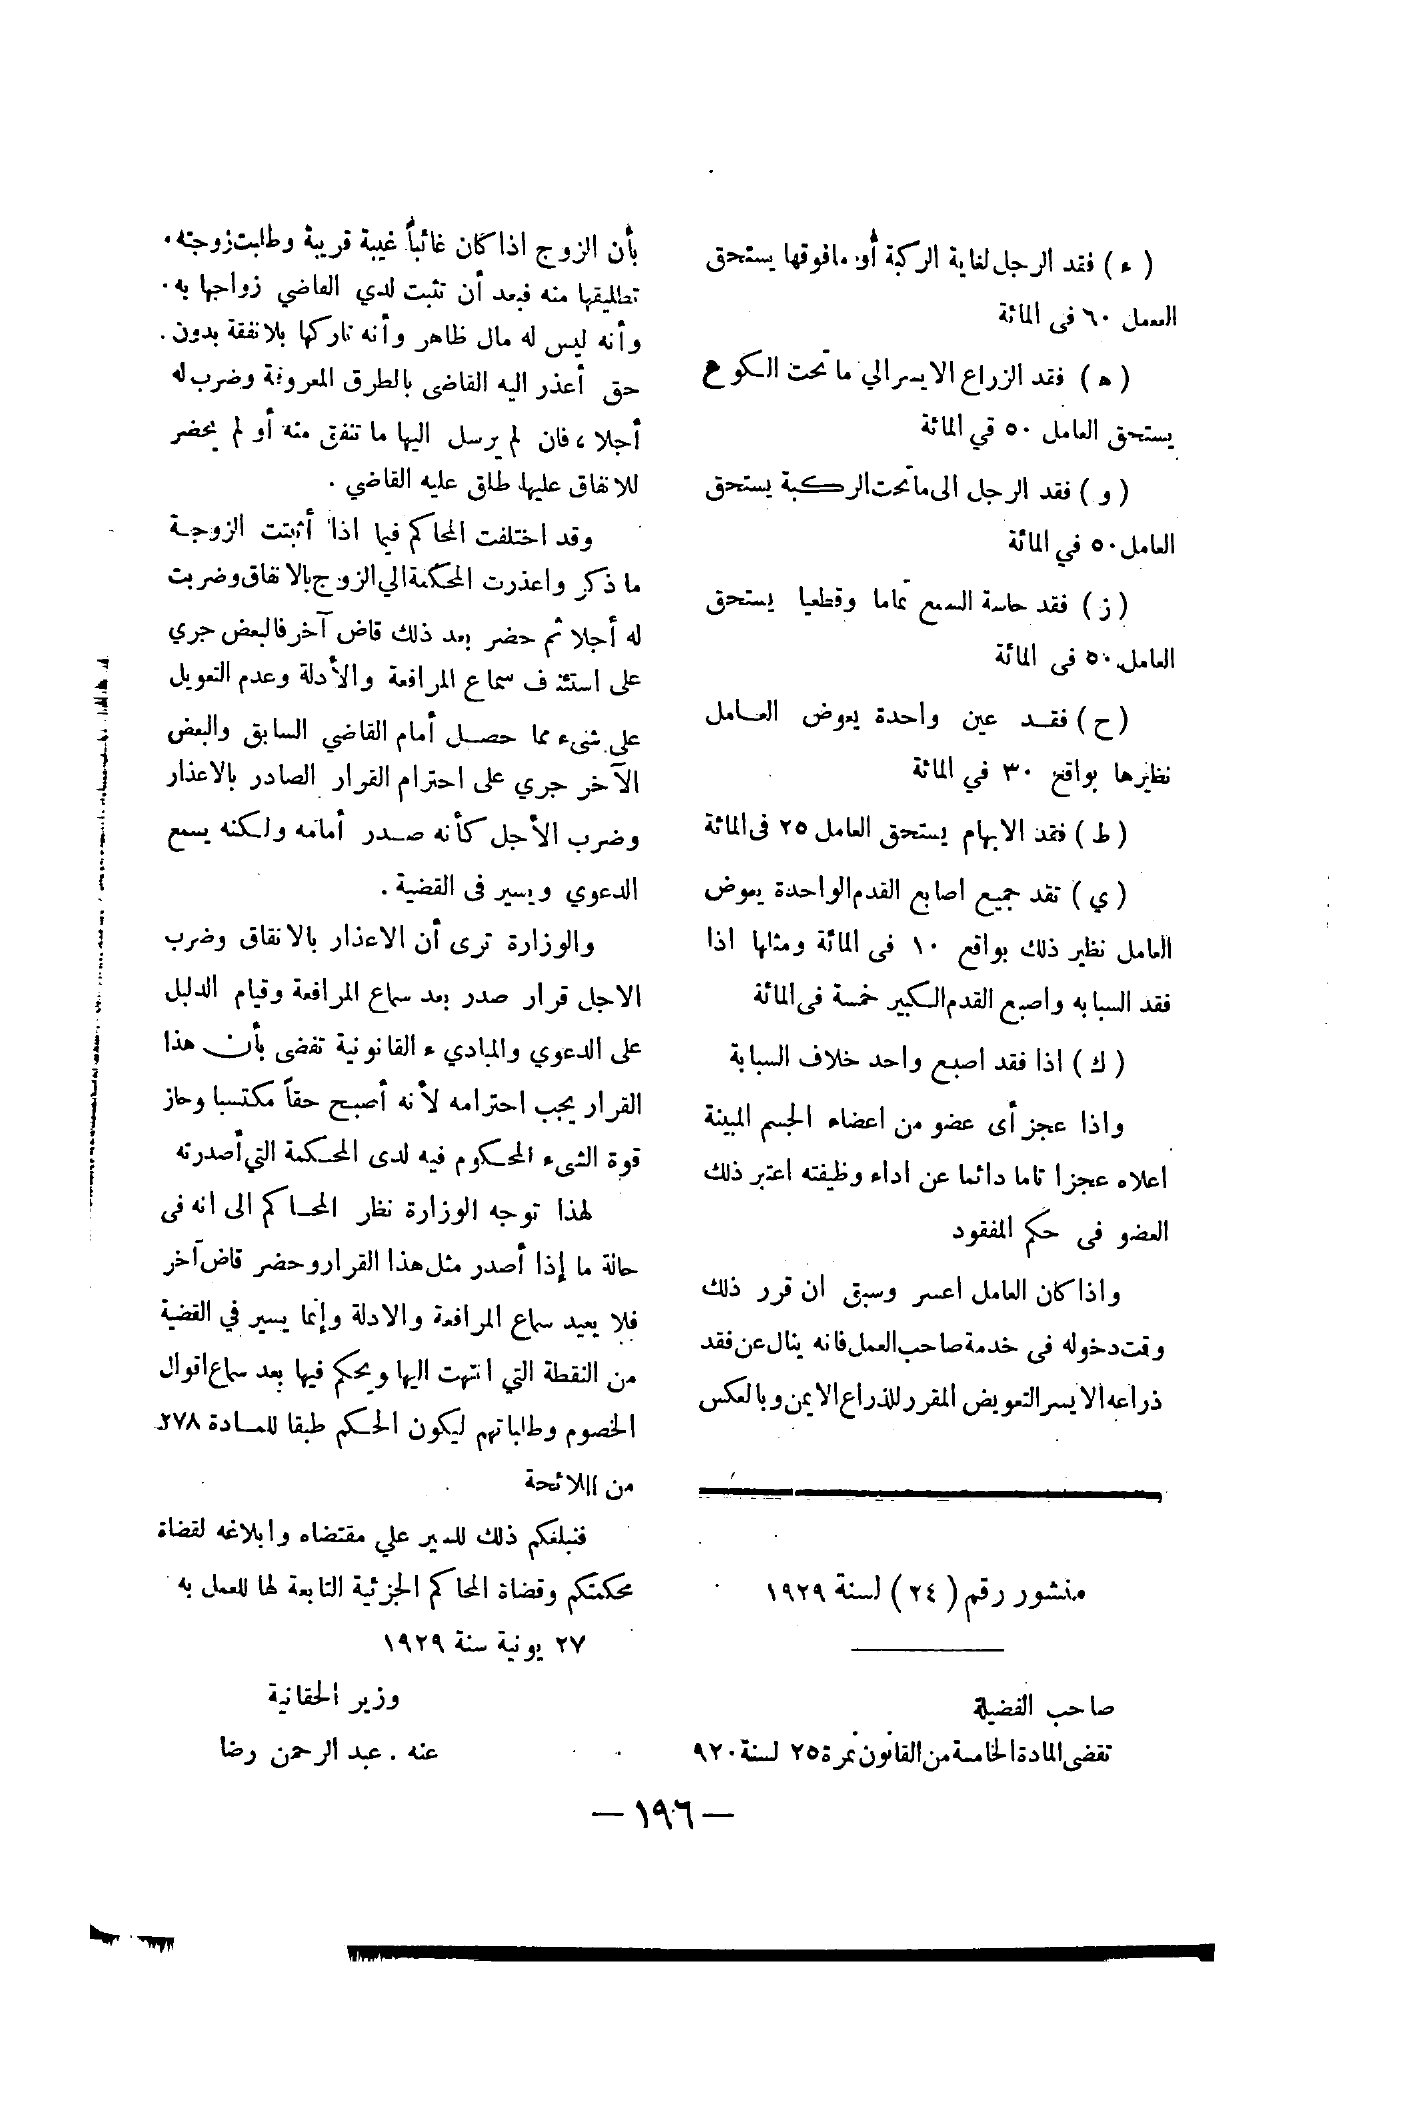 ( ء ) فقد الرجل لغاية الركبة أو مافوقها يستحق
العمل ٦٠ فى المائة
( ه ) فقد الزراع الايسر الي ما تحت الكوع
يستحق العامل ٥٠ في المائة
( و ) فقد الرجل الى ماتحت الركبة يستحق
العامل ٥٠ في المائة
( ز ) فقد حاسة السمع تماما وقطعيا يستحق
العامل ٥٠ فى المائة
( ح ) فقد عين واحدة يعوض العامل
نظايرها بواقع ٣٠ في المائة
( ط ) فقد الابهام يستحق العامل ٢٥ فى المائة
( ي ) تقد جميع اصابع القدم الواحدة يعوض
العامل نظير ذلك بواقع ١٠ فى المائة ومثلها اذا
فقد السبابه واصبع القدم الكبير خمسة فى المائة
( ك ) اذا فقد اصبع واحد خلاف السبابة
واذا عجز أى عضو من اعضاء الجسم المبينة
اعلاه عجزا تاما دائما عن اداء وظيفته اعتبر ذلك
العضو فى حكم المفقود
واذا كان العامل اعسر وسبق ان قرر ذلك
وقت دخوله فى خدمة صاحب العمل فانه ينال عن فقد
ذراعه الايسر التعويض المقرر للذراع الايمن وبالعكس
منشور رقم ( ٢٤ ) لسنة ١٩٢٩
صاحب الفضيلة
تقضى المادة الخامسة من القانون نمرة ٢٥ لسنة ٩٢٠
بأن الزوج اذا كان غائباً غيبة قريبة وطلبت زوجته
تطليقها منه فبعد أن تثبت لدي القاضي زواجها به
وأنه ليس له مال ظاهر وأنه تاركها بلا نفقة بدون
حق أعذر اليه القاضى بالطرق المعروفة وضرب له
أجلا ، فان لم يرسل اليها ما تنفق منه أو لم يحضر
للانفاق عليها طلق عليه القاضي .
وقد اختلفت المحاكم فيما اذا أثبتت الزوجة
ما ذكر واعذرت المحكمة الي الزوج بالانفاق وضربت
له أجلا ثم حضر بعد ذلك قاض آخر فالبعض جري
على استئناف سماع المرافعة والأدلة وعدم التعويل
على شىء مما حصل أمام القاضي السابق والبعض
الآخر جري على احترام القرار الصادر بالاعذار
وضرب الأجل كأنه صدر أمامه ولكنه يسمع
الدعوي ويسير فى القضية .
والوزارة ترى أن الاعذار بالانفاق وضرب
الاجل قرار صدر بعد سماع المرافعة وقيام الدليل
على الدعوي والمباديء القانونية تقضى بأن هذا
القرار يجب احترامه لأنه أصبح حقاً مكتسبا وحاز
قوة الشىء المحكوم فيه لدى المحكمة التي أصدرته
لهذا توجه الوزارة نظر المحاكم الى انه فى
حالة ما إذا أصدر مثل هذا القرار وحضر قاض آخر
فلا يعيد سماع المرافعة والادلة وإنما يسير في القضية
من النقطة التي انتهت اليها ويحكم فيها بعد سماع اقوال
الخصوم وطلباتهم ليكون الحكم طبقا للمادة ٢٧٨
من اللائحة
فنبلغكم ذلك للسير علي مقتضاه وابلاغه لقضاة
محكمتكم وقضاة المحاكم الجزئية التابعة لها للعمل به
٢٧ يونية سنة ١٩٢٩
وزير الحقانية
عنه . عبد الرحمن رضا
— ١٩٦ —